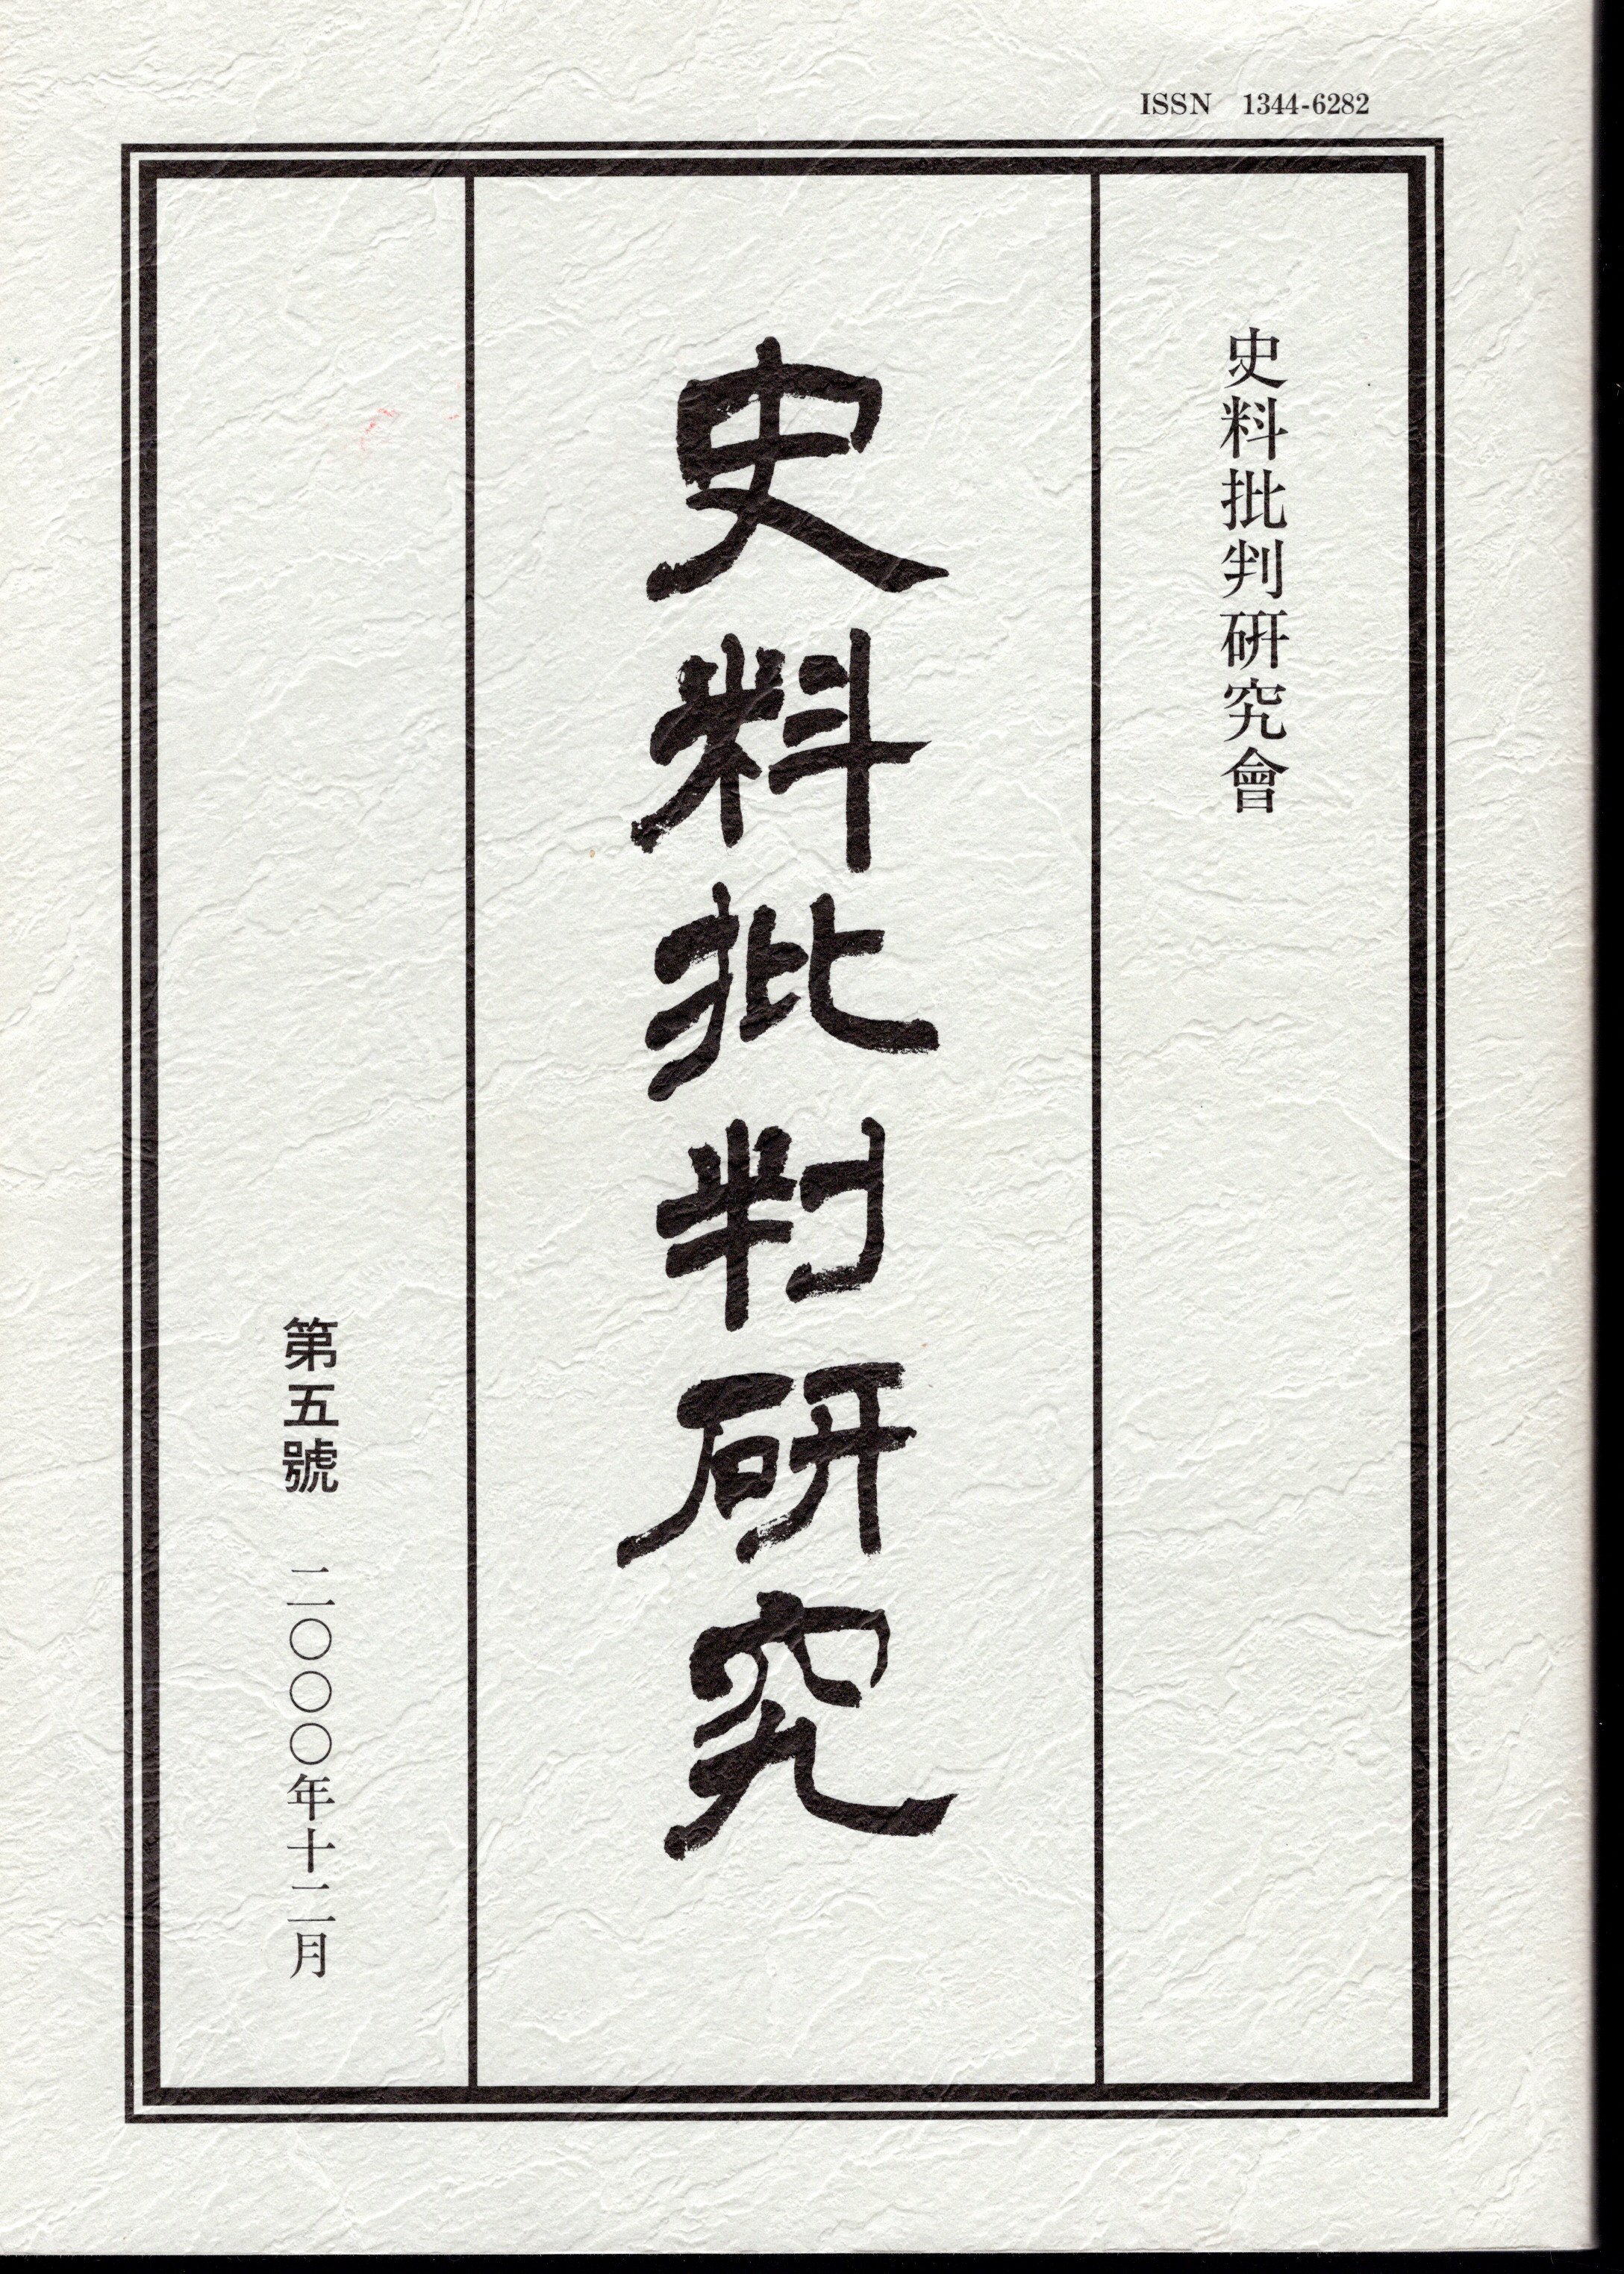 ISSN 1344-6282
史料批判研究會
史料批判研究
第五號 二〇〇〇年十二月